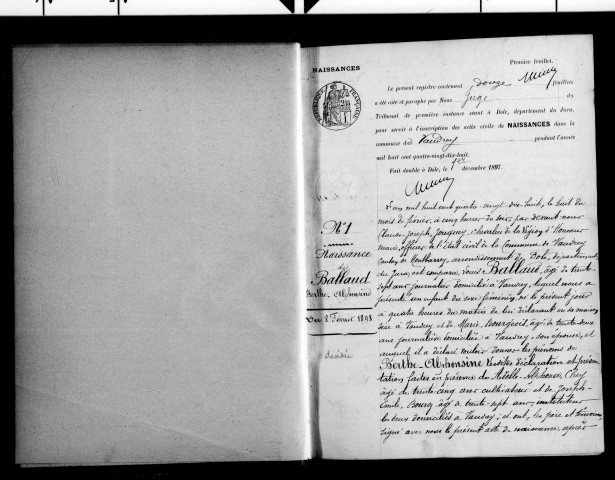 NAISSANCES
Premier feuillet.
Le présent registre contenant douze feuillets
a été coté et paraphé par Nous Juge du
Tribunal de première instance séant à Dole, département du Jura,
pour servir à l'inscription des actes civils de NAISSANCES dans la
commune de Vaudrey pendant l'année
mil huit cent quatre-vingt-dix-huit.
Fait double à Dole, le 1er décembre 1897.
N°1
Naissance
de
Ballaud
Berthe-Alphonsine
Du 8 Février 1898
décédée
L'an mil huit cent quatre vingt dix-huit, le huit du
mois de février, à cinq heures du soir, par devant nous
Claude-Joseph, chevalier de la Légion d'Honneur
maire, officier de l'état civil de la Commune de Vaudrey
Canton de Montbarrey, arrondissement de Dole, département
du Jura, est comparu, Louis Ballaud, âgé de trente-
sept ans journalier domicilié à Vaudrey, lequel nous a
présenté un enfant du sexe féminin, né le présent jour
à quatre heures du matin de lui déclarant en sa maison
sise à Vaudrey et de Marie, Bourgeois, âgée de trente-deux
ans journalière domiciliée à Vaudrey, son épouse, et
auquel il a déclaré vouloir donner les prénoms de
Berthe-Alphonsine. Lesdites déclaration et présen-
tation faites en présence de Alphonse,
âgé de trente cinq ans cultivateur et de Joseph-
Emile, Bourg âgé de trente-sept ans, instituteur
les deux domiciliés à Vaudrey; et ont, les père et témoins
signé avec nous le présent acte de naissance, après